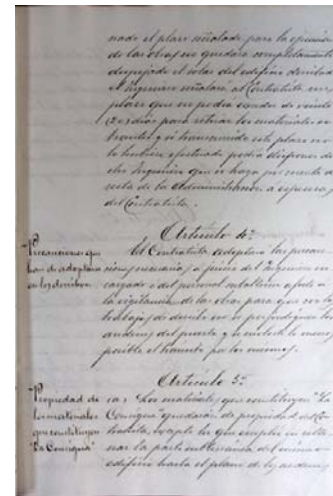 nado el plazo señalado para la ejecución
de las obras no quedara completamente
despejado el solar del edificio derribado
el Ingeniero señalará al Contratista un
plazo que no podrá exceder de veinte
(20) días para retirar los materiales so-
brantes y si transcurrido este plazo no
lo hubiere efectuado podrá disponer de
ellos Ingeniero que se haga por cuenta
de la Administracion a expensas
del Contratista.
Artículo 4º
Precauciones que
han de adoptarse
en los derribos.
El Contratista adoptará las precau-
ciones necesarias, a juicio del Ingeniero en-
cargado o del personal subalterno afecto a
la vigilancia de las obras para que con los
trabajos de derribo no se perjudiquen los
andenes del puerto y se moleste lo menos
posible el tránsito por los mismos.
Artículo 5º
Propiedad de
los materiales
que constituyen
"La Comigua"
Los materiales que constituyen "La
Comigua" quedarán de propiedad del Con-
tratista, excepto los que emplee en relle-
nar la parte subterránea del mismo
edificio hasta el plano de los andenes